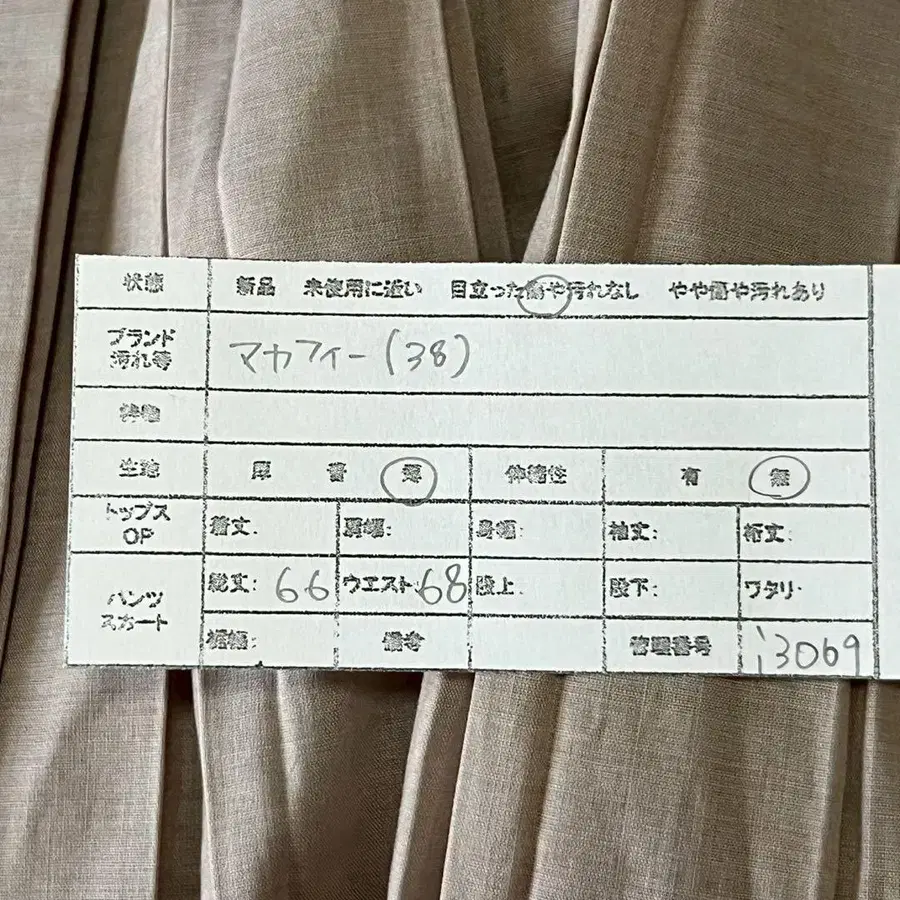 状態 新品 未使用に近い 目立った傷や汚れなし やや傷や汚れあり
ブランド
汚れ等 マカフィー(38)
生地 厚 普 薄 伸縮性 有 無
トップス
OP 着丈: 肩幅: 身幅: 袖丈: 裄丈:
パンツ
スカート 総丈: 66 ウエスト: 68 股上: 股下: ワタリ:
裾幅: 備考 管理番号 i3069